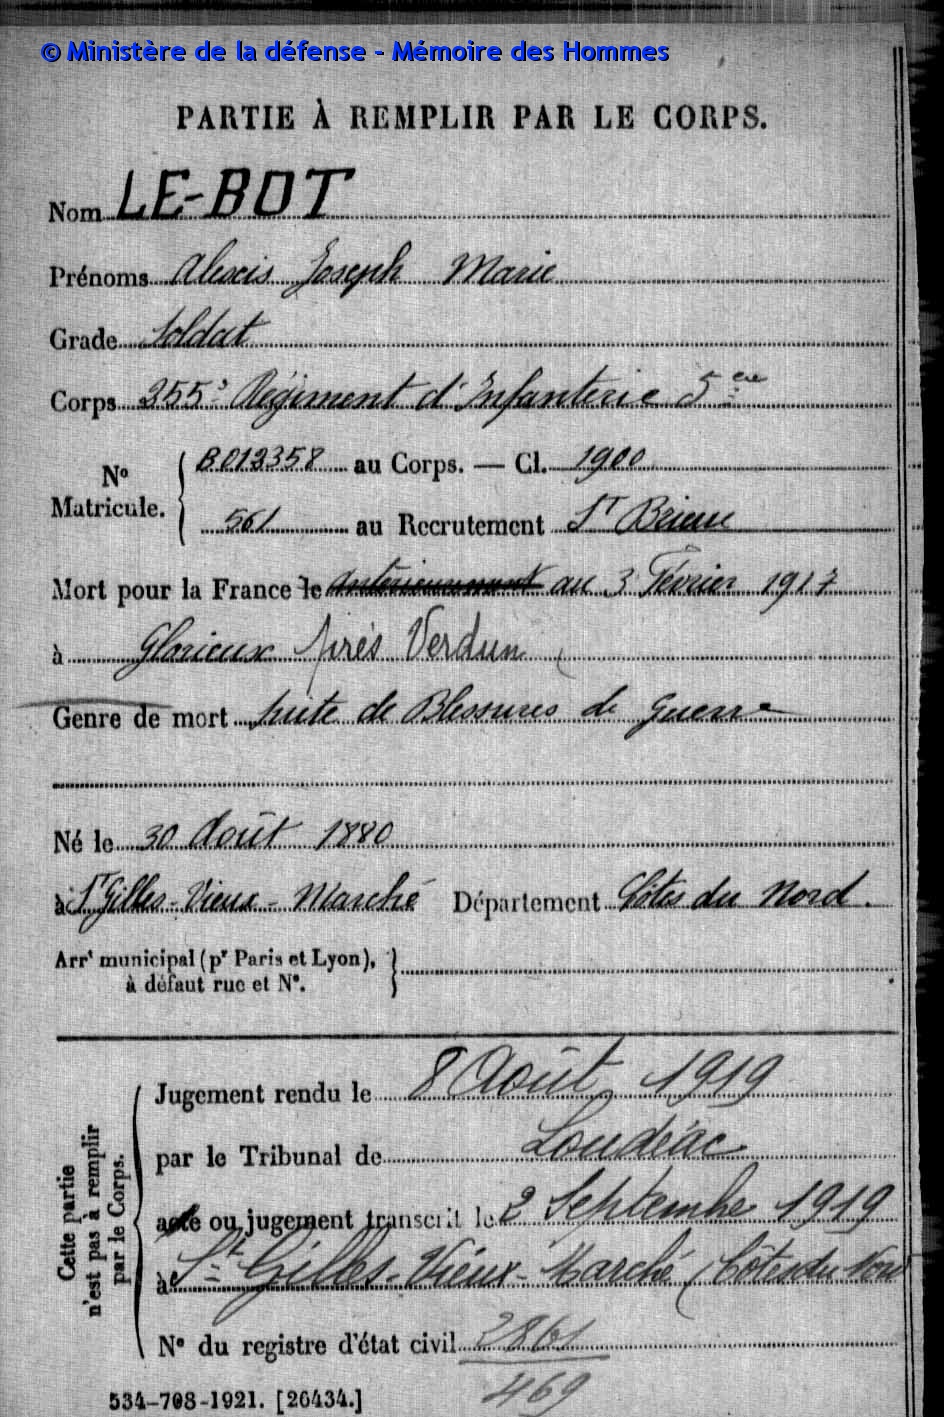 © Ministère de la défense - Mémoire des Hommes
PARTIE À REMPLIR PAR LE CORPS.
Nom LE-BOT
Prénoms Alexis Joseph Marie
Grade Soldat
Corps 355e Régiment d'Infanterie 5eme
Nº Matricule. B013358 au Corps. — Cl. 1900
561 au Recrutement St Brieuc
Mort pour la France le antérieurement au 3 Février 1917
à Glorieux près Verdun
Genre de mort suite de Blessures de guerre
Né le 30 Août 1880
à St Gilles-Vieux-Marché Département Côtes du Nord.
Arrt municipal (pr Paris et Lyon),
à défaut rue et Nº.
Cette partie
n'est pas à remplir
par le Corps.
Jugement rendu le 8 Août 1919
par le Tribunal de Loudéac
acte ou jugement transcrit le 2 Septembre 1919
à St Gilles-Vieux-Marché (Côtes du Nord
Nº du registre d'état civil 2861
469
534-708-1921. [26434.]